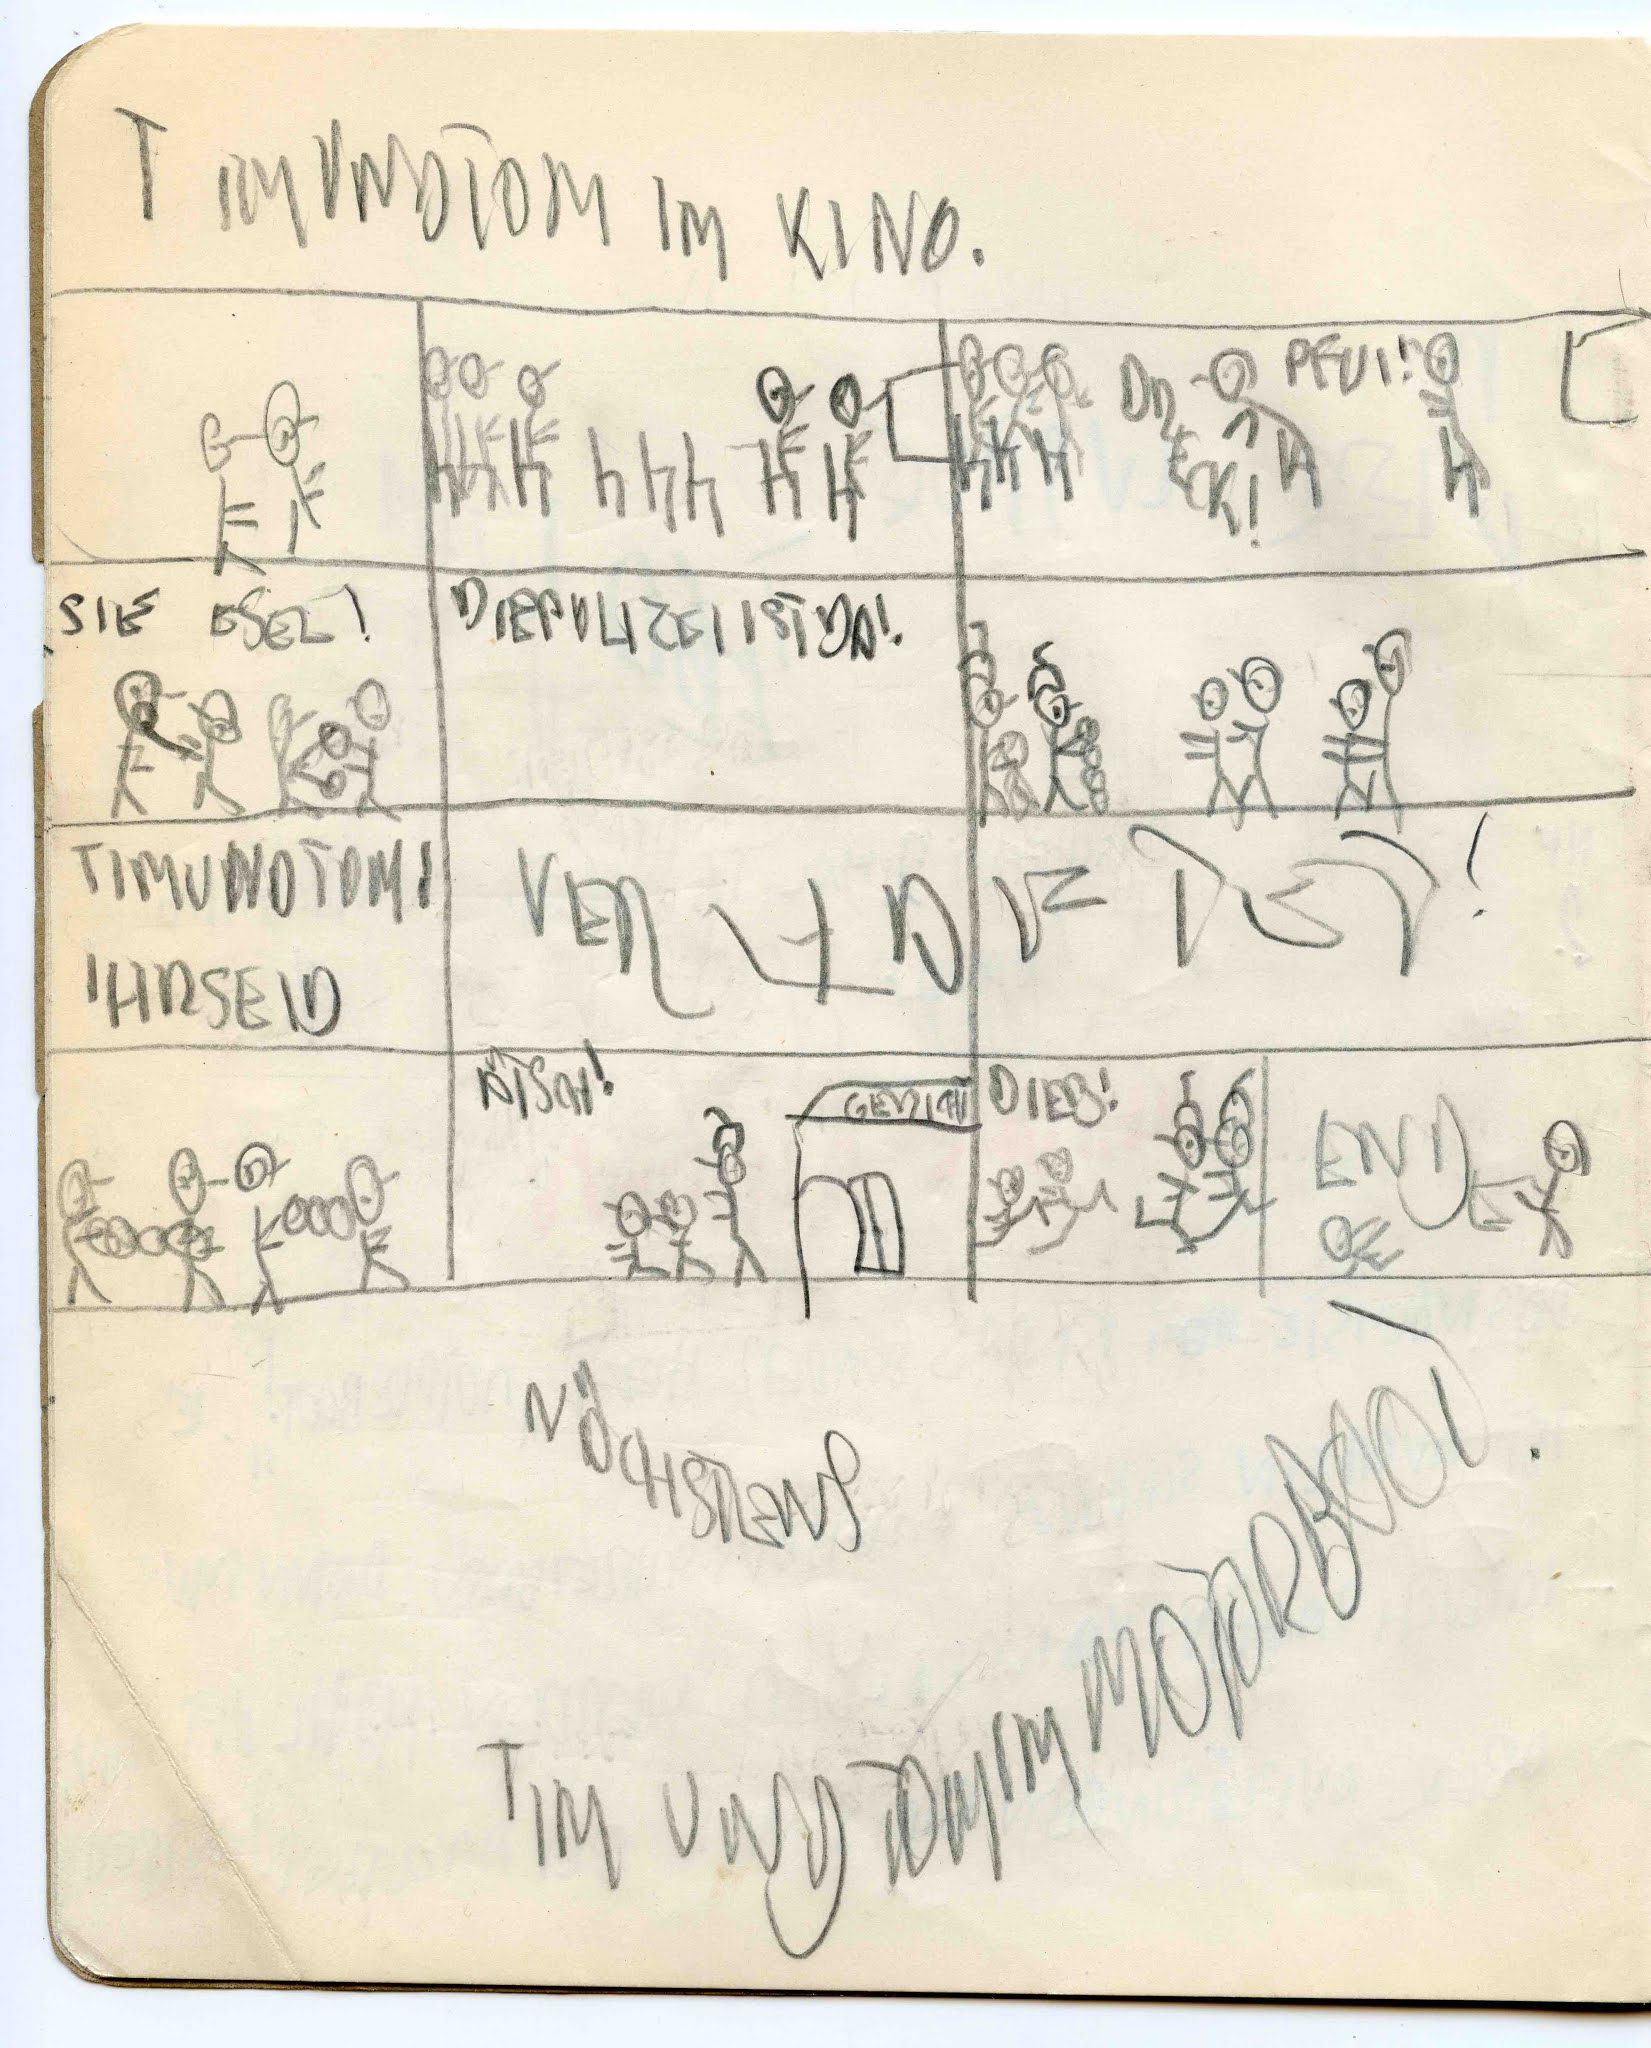 TIMUNDTOM IM KINO.
DR
ECK!
PFUI!
SIE ESEL!
DIEPOLIZEIISTDA!
TIMUNDTOM!
IHRSEID
VER
!
ZISCH!
GERICHT
DIEB!
END
NÄCHSTENS
TIM UND TOM IM MOTORBOOT.